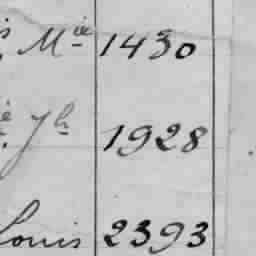 Mie 1430
Jh 1928
Louis 2393